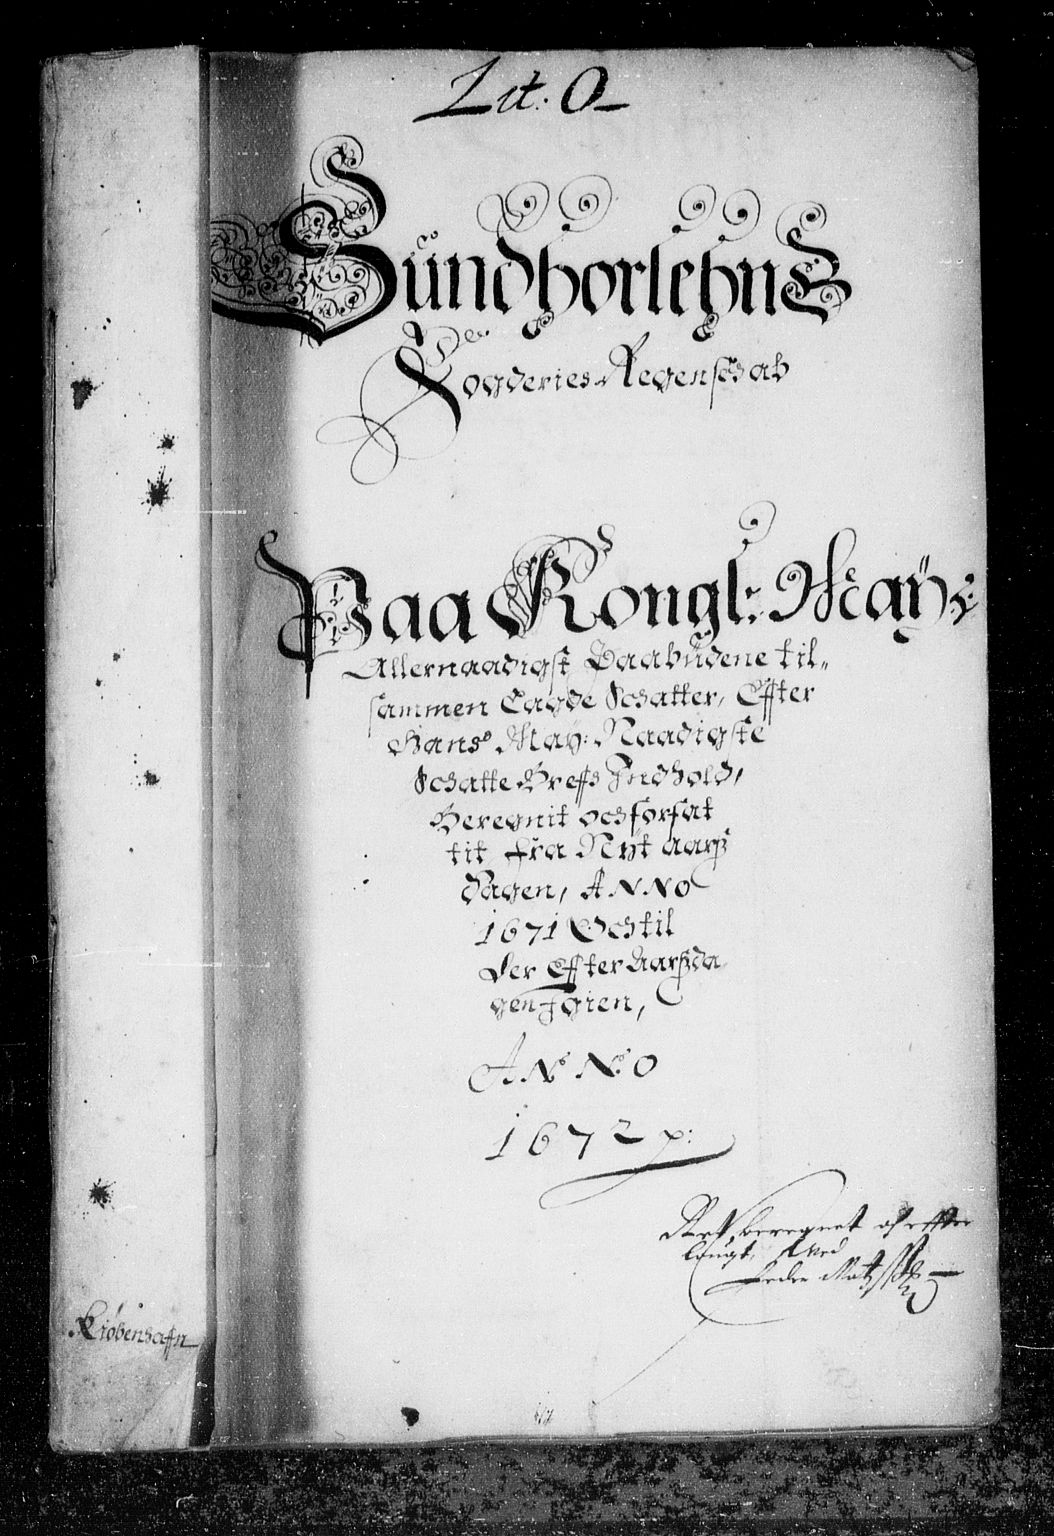 Lit: O
Sündhorlehns
Fogderies Regenschab
Paa Kongl: May:
Allernaadigst Paabüdene til-
sammen Lagde Schatter, Effter
Hans May: Naadigste
Schatte Breffs Indhold,
Beregnit och forfat
tit fra Nyt aars
dagen, ANNO
1671 Och til
der Effter Aarsda
gen Igien,
ANNO
1672
beregnet
laugt, Med
Peder
Kiøbenhaffn